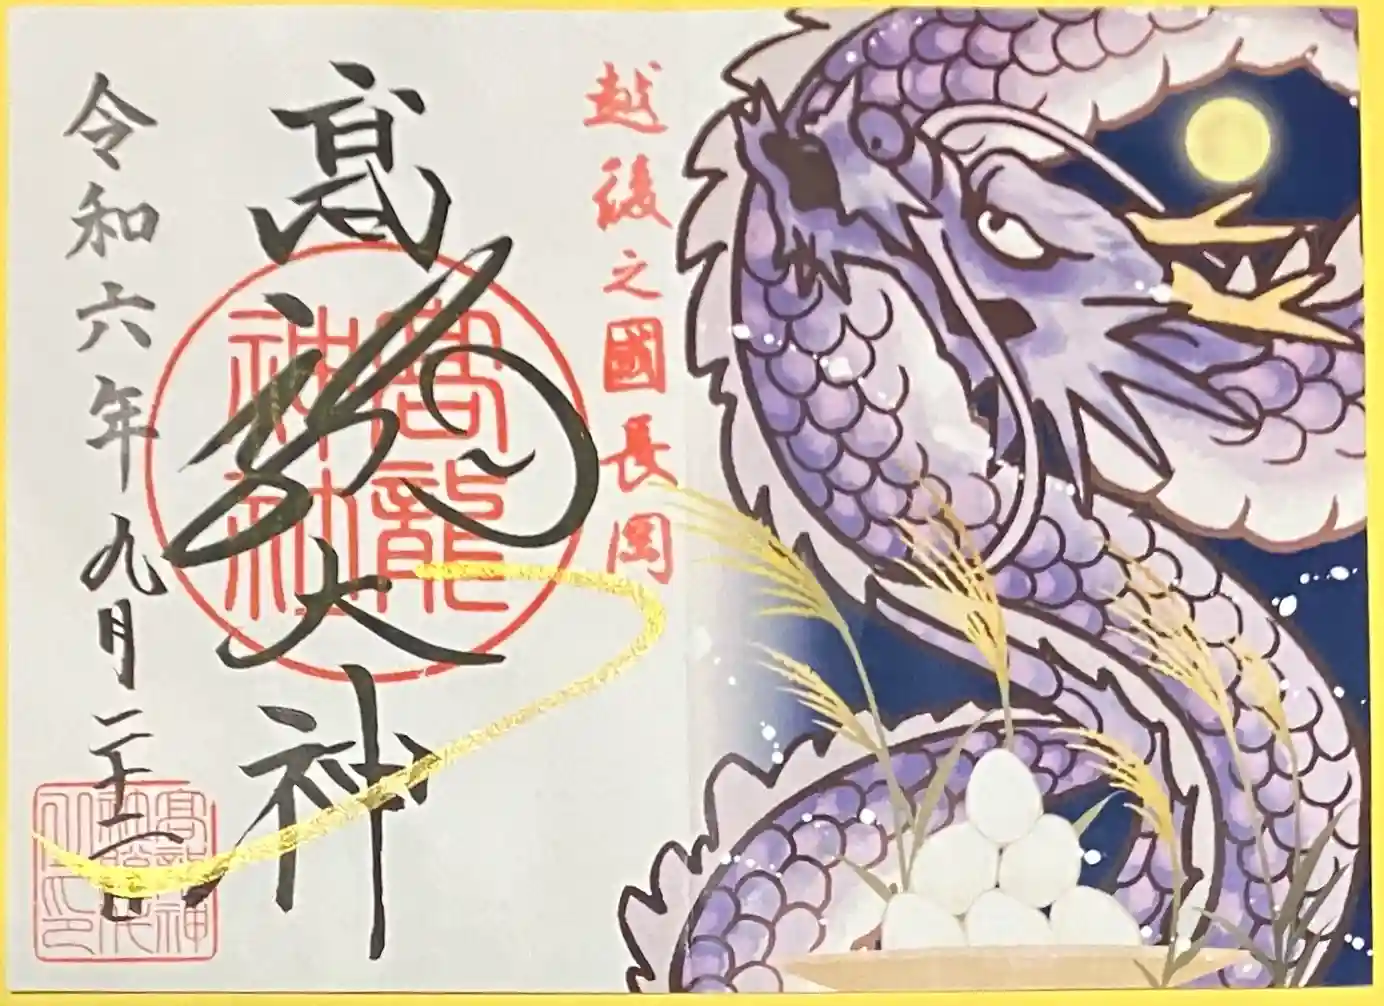 越後之國長岡
高龍大神
高龍神社
令和六年九月二十二日